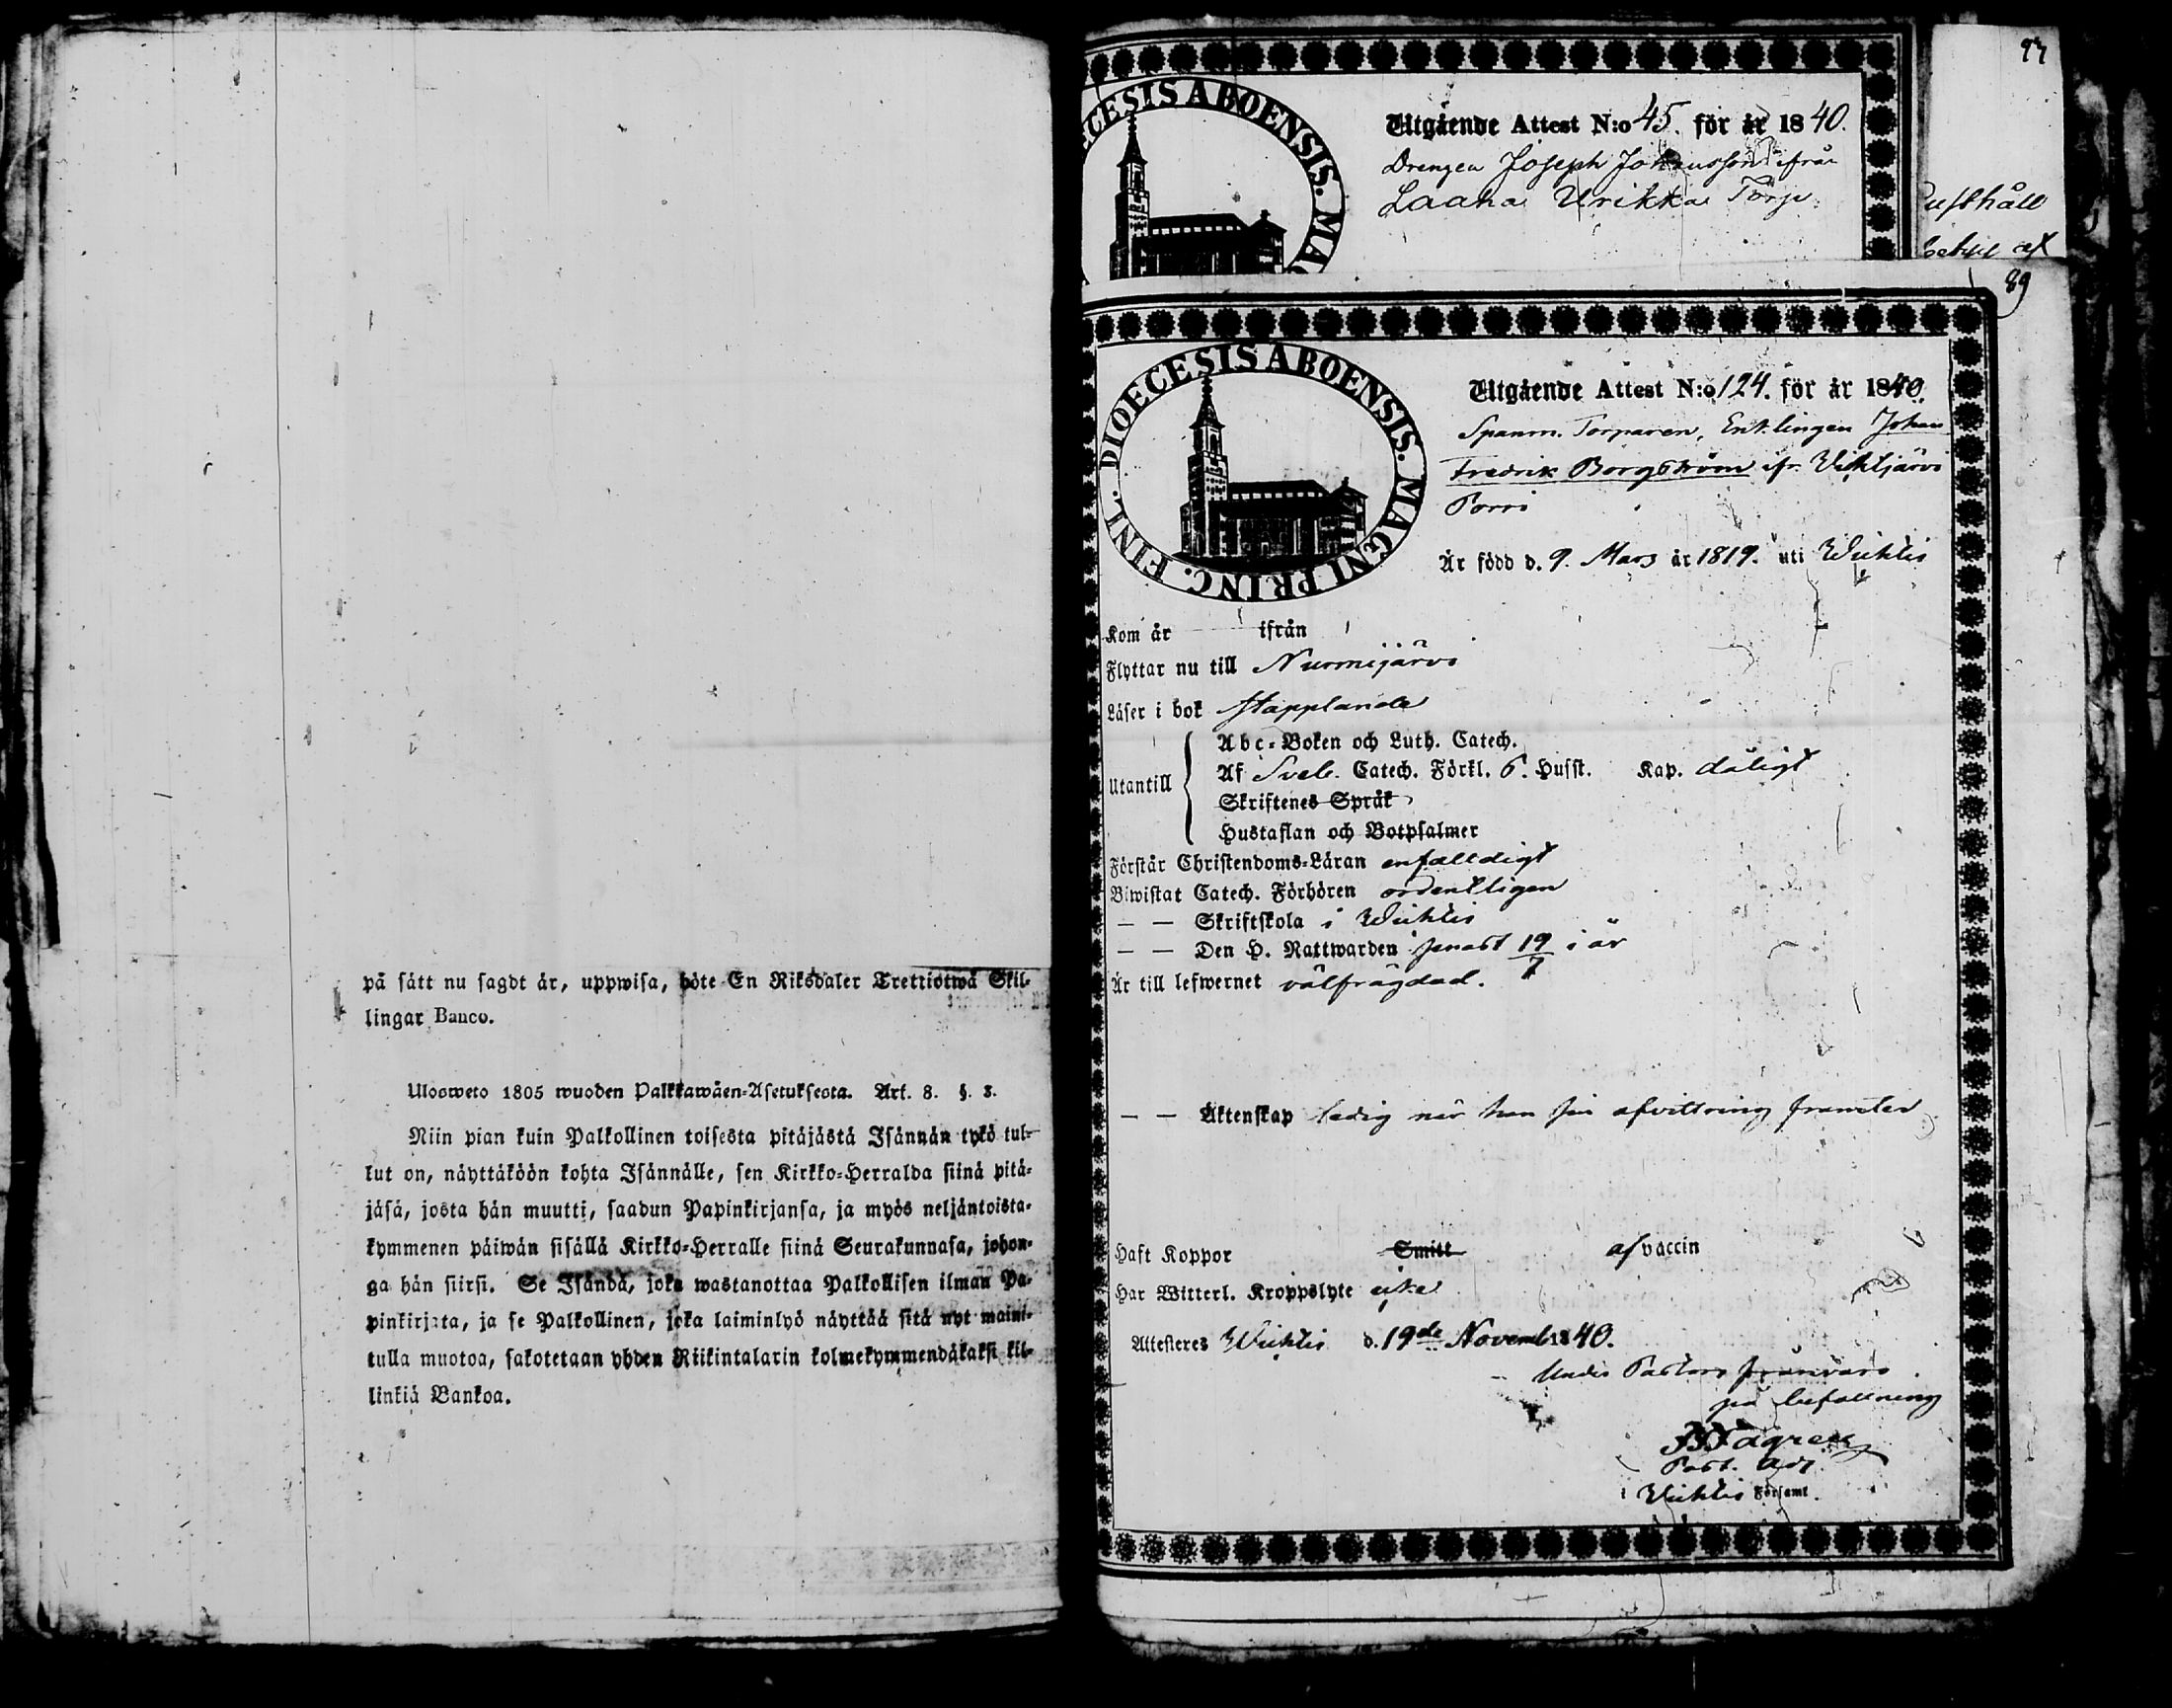 på sätt nu sagdt är, uppwisa, böte En Riksdaler Trettiotwå Skil-
lingar Banco.
Ulosweto 1805 wuoden Palkkawäen-Asetuksesta. Art. 8. §. 3.
Niin pian kuin Palkollinen toisesta pitäjästä Isännän tykö tul-
lut on, näyttäköön kohta Isännälle, sen Kirkko-Herralda siinä pitä-
jäsä, josta hän muutti, saadun Papinkirjansa, ja myös neljäntoista-
kymmenen päiwän sisällä Kirkko-Herralle siinä Seurakunnasa, johon-
ga hän siirsi. Se Isändä, joka wastanottaa Palkollisen ilman Pa-
pinkirjata, ja se Palkollinen, joka laiminlyö näyttää sitä nyt maini-
tulla muotoa, sakotetaan yhden Riikintalarin kolmekymmendäkaksi kil-
linkiä Bankoa.
97
DIOECESIS ABOENSIS. MAG
Utgående Attest N:o 45. för år 1840.
Drengen Joseph Johansson ifrån
Laaha Urikka Torp.
usthåll
af
89
DIOECESIS ABOENSIS. MAGNI PRINC. FINL.
Utgående Attest N:o 124. för år 1840.
Spanm. Torparen, Enklingen Johan
Fredrik Borgström ifr. Wihtjärvi
Porri
Är född d. 9. Mars år 1819. uti Wichtis
Kom år ifrån
Flyttar nu till Nurmijärvi
Läser i bok stapplande
Utantill
Abc-Boken och Luth. Catech.
Af Sveb. Catech. Förkl. 6. Hufst. Kap. dåligt
Skriftenes Språk
Hustaflan och Botpsalmer
Förstår Christendoms-Läran enfalldigt
Biwistat Catech. Förhören ordentligen
— — Skriftskola i Wichtis
— — Den H. Nattwarden senast 19/7 i år
Är till lefwernet välfrägdad.
— — Äktenskap ledig när han sin afvittring framter
Haft Koppor Smitt af vaccin
Har Witterl. Kroppslyte icke
Attesteres Wichtis d. 19de Novemb 1840.
Under Pastors frånvaro
på befallning
Fagren
Past. Adj.
i Wichtis Församl.